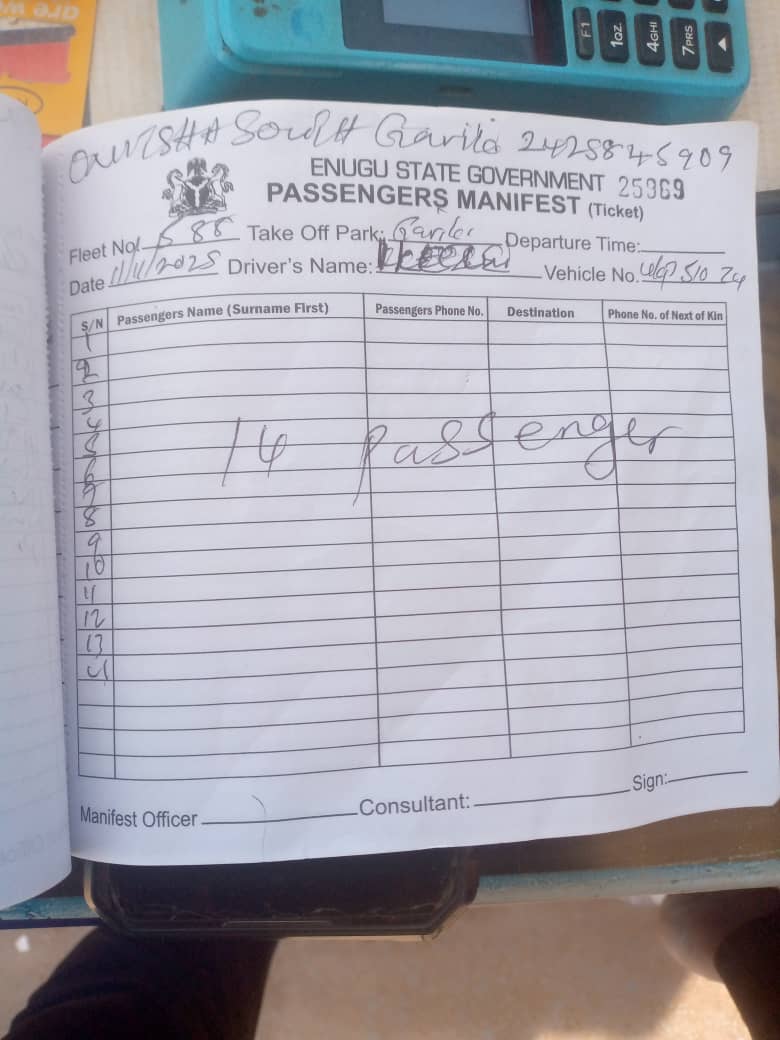 F1
1QZ.
4GHI
7PRS
ONITSHA South Gariki 2425845909
ENUGU STATE GOVERNMENT 25969
PASSENGERS MANIFEST (Ticket)
Fleet No! 588 Take Off Park: Gariki Departure Time:
Date 11/11/2025 Driver's Name: Vehicle No. 510
S/N Passengers Name (Surname First) Passengers Phone No. Destination Phone No. of Next of Kin
1
2
3
4
5
6
7
8
9
10
11
12
13
14
14 passenger
Manifest Officer Consultant: Sign: